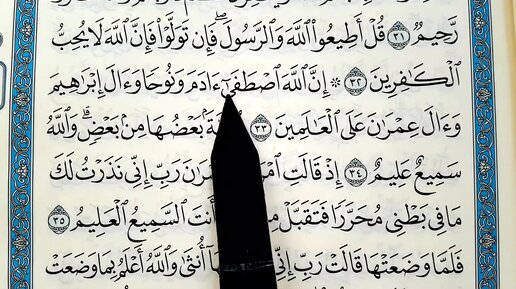 رَّحِيمٌ ٣١ قُلْ أَطِيعُوا۟ ٱللَّهَ وَٱلرَّسُولَ ۖ فَإِن تَوَلَّوْا۟ فَإِنَّ ٱللَّهَ لَا يُحِبُّ
ٱلْكَٰفِرِينَ ٣٢ ۞ إِنَّ ٱللَّهَ ٱصْطَفَىٰٓ ءَادَمَ وَنُوحًا وَءَالَ إِبْرَٰهِيمَ
وَءَالَ عِمْرَٰنَ عَلَى ٱلْعَٰلَمِينَ ٣٣ بَعْضُهَا مِنۢ بَعْضٍ ۗ وَٱللَّهُ
سَمِيعٌ عَلِيمٌ ٣٤ إِذْ قَالَتِ رَبِّ إِنِّى نَذَرْتُ لَكَ
مَا فِى بَطْنِى مُحَرَّرًا فَتَقَبَّلْ أَنتَ ٱلسَّمِيعُ ٱلْعَلِيمُ ٣٥
فَلَمَّا وَضَعَتْهَا قَالَتْ رَبِّ إِنِّى أُنثَىٰ وَٱللَّهُ أَعْلَمُ بِمَا وَضَعَتْ